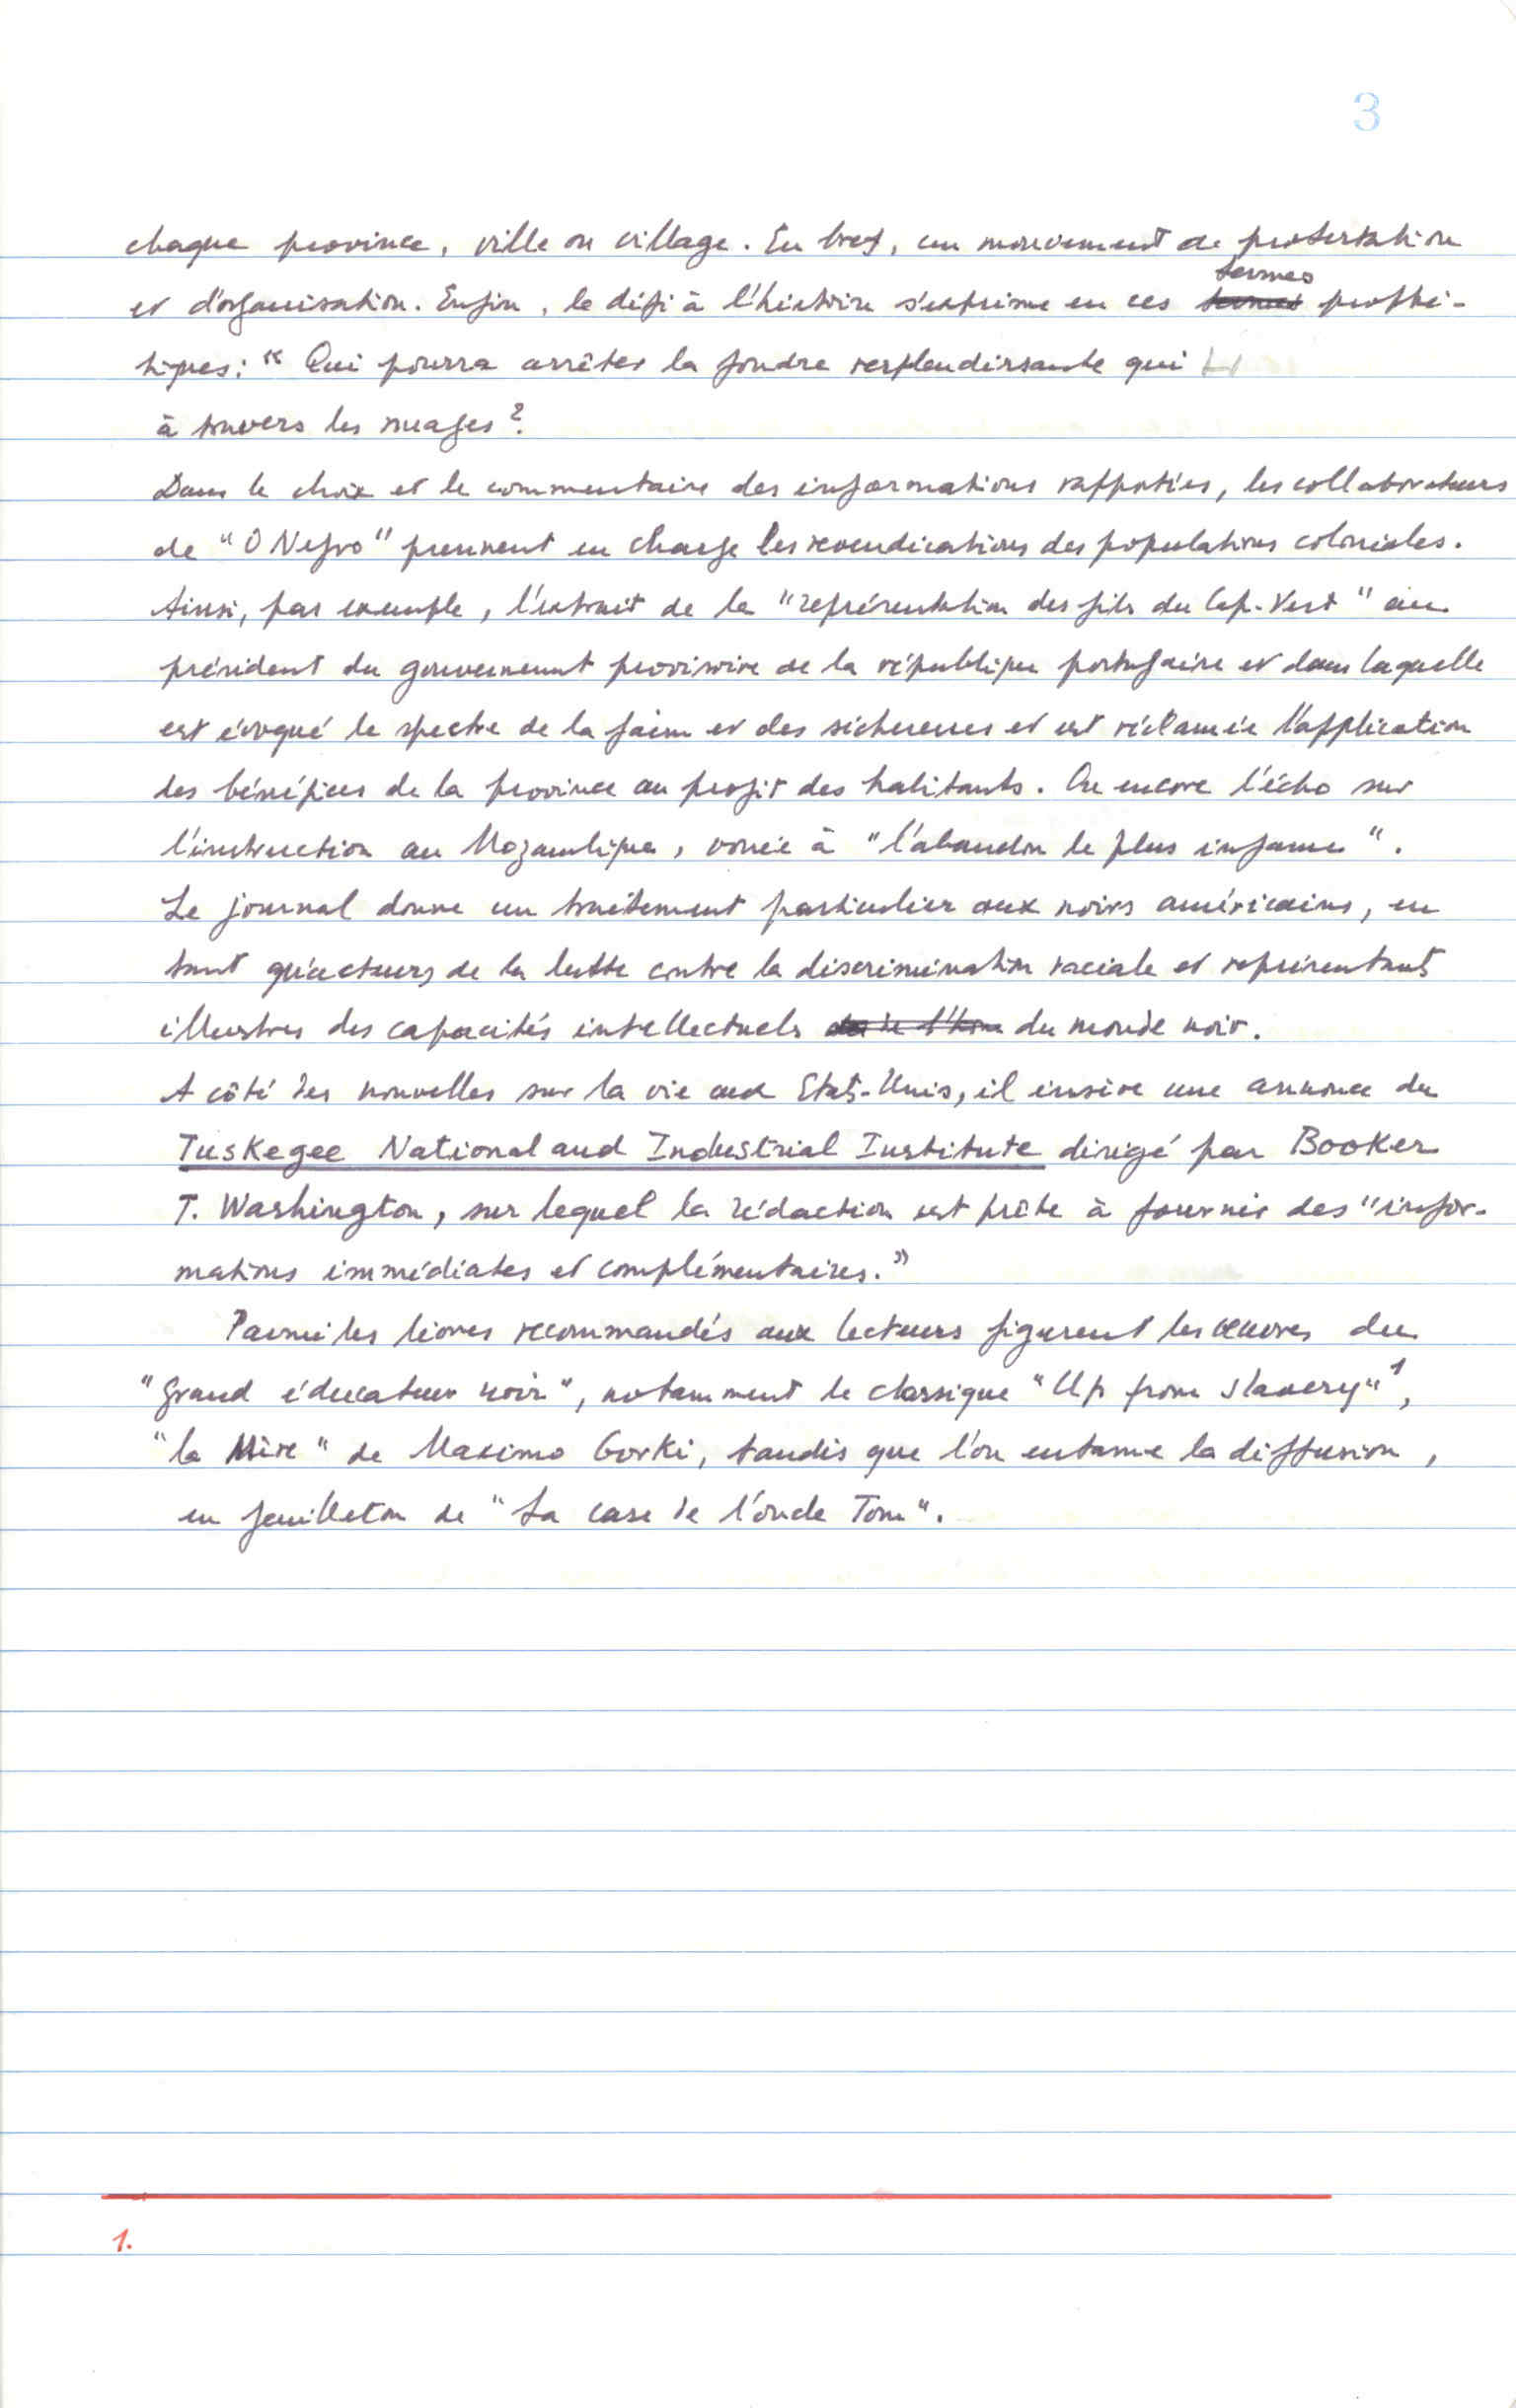 3
chaque province, ville ou village. En bref, un mouvement de protestation
termes
et d'organisation. Enfin, le défi à l'histoire s'exprime en ces termes prophé-
tiques: " Qui pourra arrêter la foudre resplendissante qui
à travers les nuages?
Dans le choix et le commentaire des informations rapportées, les collaborateurs
de "O Negro" prennent en charge les revendications des populations coloniales.
Ainsi, par exemple, l'extrait de la "représentation des fils du Cap-Vert" au
président du gouvernement provisoire de la république portugaise et dans laquelle
est évoqué le spectre de la faim et des sécheresses et est réclamée l'application
des bénéfices de la province au profit des habitants. Ou encore l'écho sur
l'instruction au Mozambique, vouée à "l'abandon le plus infame".
Le journal donne un traitement particulier aux noirs américains, en
tant qu'acteurs de la lutte contre la discrimination raciale et représentants
illustres des capacités intellectuels de l'hom du monde noir.
A côté des nouvelles sur la vie aux Etats-Unis, il insère une annonce du
Tuskegee National and Industrial Institute dirigé par Booker
T. Washington, sur lequel la rédaction est prête à fournir des "infor-
mations immédiates et complémentaires."
Parmi les livres recommandés aux lecteurs figurent les œuvres du
"grand éducateur noir", notamment le classique "Up from slavery"1,
"la Mère" de Maximo Gorki, tandis que l'on entame la diffusion,
en feuilleton de "La case de l'oncle Tom".
1.